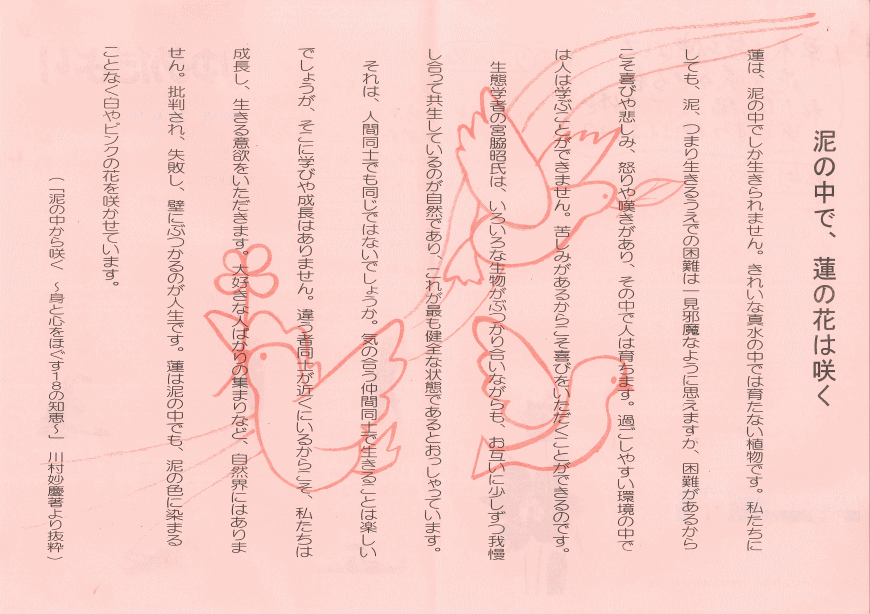 泥の中で、蓮の花は咲く
蓮は、泥の中でしか生きられません。きれいな真水の中では育たない植物です。私たちに
しても、泥、つまり生きるうえでの困難は一見邪魔なように思えますが、困難があるから
こそ喜びや悲しみ、怒りや嘆きがあり、その中で人は育ちます。過ごしやすい環境の中で
は人は学ぶことができません。苦しみがあるからこそ喜びをいただくことができるのです。
生態学者の宮脇昭氏は、いろいろな生物がぶつかり合いながらも、お互いに少しずつ我慢
し合って共生しているのが自然であり、これが最も健全な状態であるとおっしゃっています。
それは、人間同士でも同じではないでしょうか。気の合う仲間同士で生きることは楽しい
でしょうが、そこに学びや成長はありません。違う者同士が近くにいるからこそ、私たちは
成長し、生きる意欲をいただきます。大好きな人ばかりの集まりなど、自然界にはありま
せん。批判され、失敗し、壁にぶつかるのが人生です。蓮は泥の中でも、泥の色に染まる
ことなく白やピンクの花を咲かせています。
（「泥の中から咲く　～身と心をほぐす18の知恵～」川村妙慶著より抜粋）